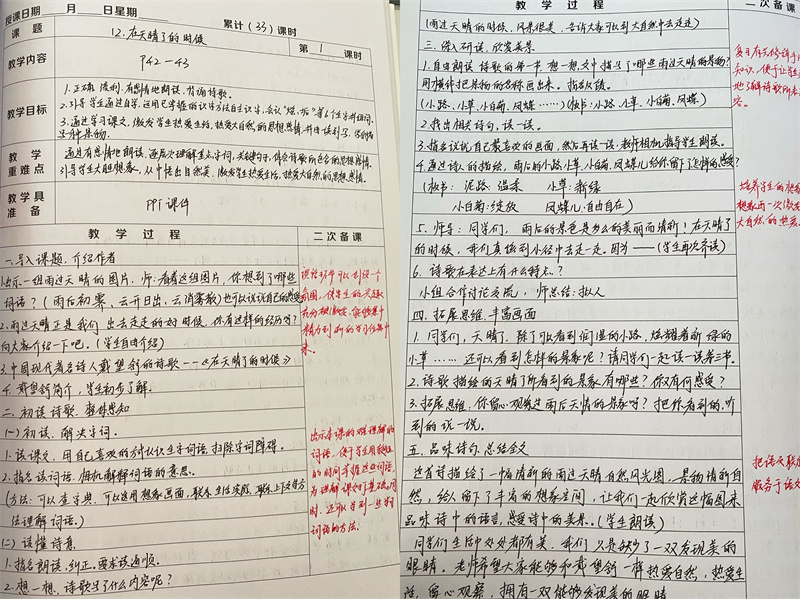 授课日期 月 日星期 累计（33）课时
课题 12.在天晴了的时候 第1课时
教学内容 P42—43
教学目标
1.正确、流利、有感情地朗读、背诵诗歌。
2.引导学生通过自学、运用已掌握的识字方法自主识字，会认
3.通过学习课文，激发学生热爱生活，热爱大自然的思想感情
教学重难点
通过有感情地朗读，理解重点字词，关键句子，体会诗歌饱含的思想感情。
引导学生大胆想象，从中悟出自然美，激发学生热爱生活，热爱大自然的思想感情。
教学具准备 PPT课件
教学过程 二次备课
一.导入课题.介绍作者
1.出示一组雨过天晴的图片.师:看着这组图片，你想到了哪些
词语？（雨后初霁、云开日出、云消雾散）也可以说说自己的感受
2.雨过天晴正是我们出去走走的好时候，你有这样的经历吗？
向大家介绍一下吧。（学生自由介绍）
3.中国现代著名诗人戴望舒的诗歌——《在天晴了的时候》
4.戴望舒简介，学生初步了解.
二.初读诗歌.整体感知
（一）初读，解决字词.
1.读课文，用自己喜欢的方式认识生字词语，扫除字词障碍。
2.指名读词语，相机解释词语的意思。
（方法：可以查字典，可以运用想象画面，联系生活实际，联系上下文等方
法理解词语。）
（二）读懂诗意
1.指名朗读，纠正。要求读通顺。
2.想一想，诗歌写了什么内容呢？
出示本课的难理解的
词语，便于学生用较短
的时间掌握这些词语，
为理解课文打基础，同
时，还可以学到一些解
词语的方法.
二次备课
（雨过天晴的时候，风景很美，告诉大家可以到大自然中去走走）
三、深入研读，欣赏美景
1.自由朗读诗歌的第一节，想一想文中描写了哪些雨过天晴的景物？
用横线把景物的名称画出来。指名读.
（小路、小草、小白菊、凤蝶……）（板书：小路、小草、小白菊、凤蝶）
2.找出相关诗句，读一读。
3.指名说说自己最喜欢的画面，然后再读一读.教师相机指导学生朗读。
4.通过诗人的描绘，雨后的小路、小草、小白菊、凤蝶儿给你留下了怎样的感受？
（板书：泥路：温柔 小草：新绿
小白菊：绽放 凤蝶儿：自由自在）
5.师导：同学们，雨后的景色是多么的美丽而清新！在天晴了
的时候，我们真该到小径中去走一走。因为——（学生再次齐读）
6.诗歌在表达上有什么特点？
小组合作讨论交流，师总结：拟人
四.拓展思维.丰富画面
1.同学们，天晴了，除了可以看到温湿的小路，炫耀着新绿的
小草……还可以看到怎样的景象呢？请同学们一起读一读第二节。
2.诗歌描绘的天晴了所看到的景象有哪些？你又有何感受？
3.拓展思维：你留心观察过雨后天晴的景象吗？把你看到的、听
到的说一说。
五.品味诗句.总结全文
这首诗描绘了一幅清新的雨过天晴自然风光图，景物清新自
然，给人留下了丰富的想象空间，让我们一起欣赏这幅图来
品味诗中的语言，感受诗中的美景。（学生朗读）
同学们生活中处处都有美，我们只是缺少了一双发现美的
眼睛。老师希望大家能够和戴望舒一样热爱自然，热爱生
活，留心观察，拥有一双能够发现美的眼睛